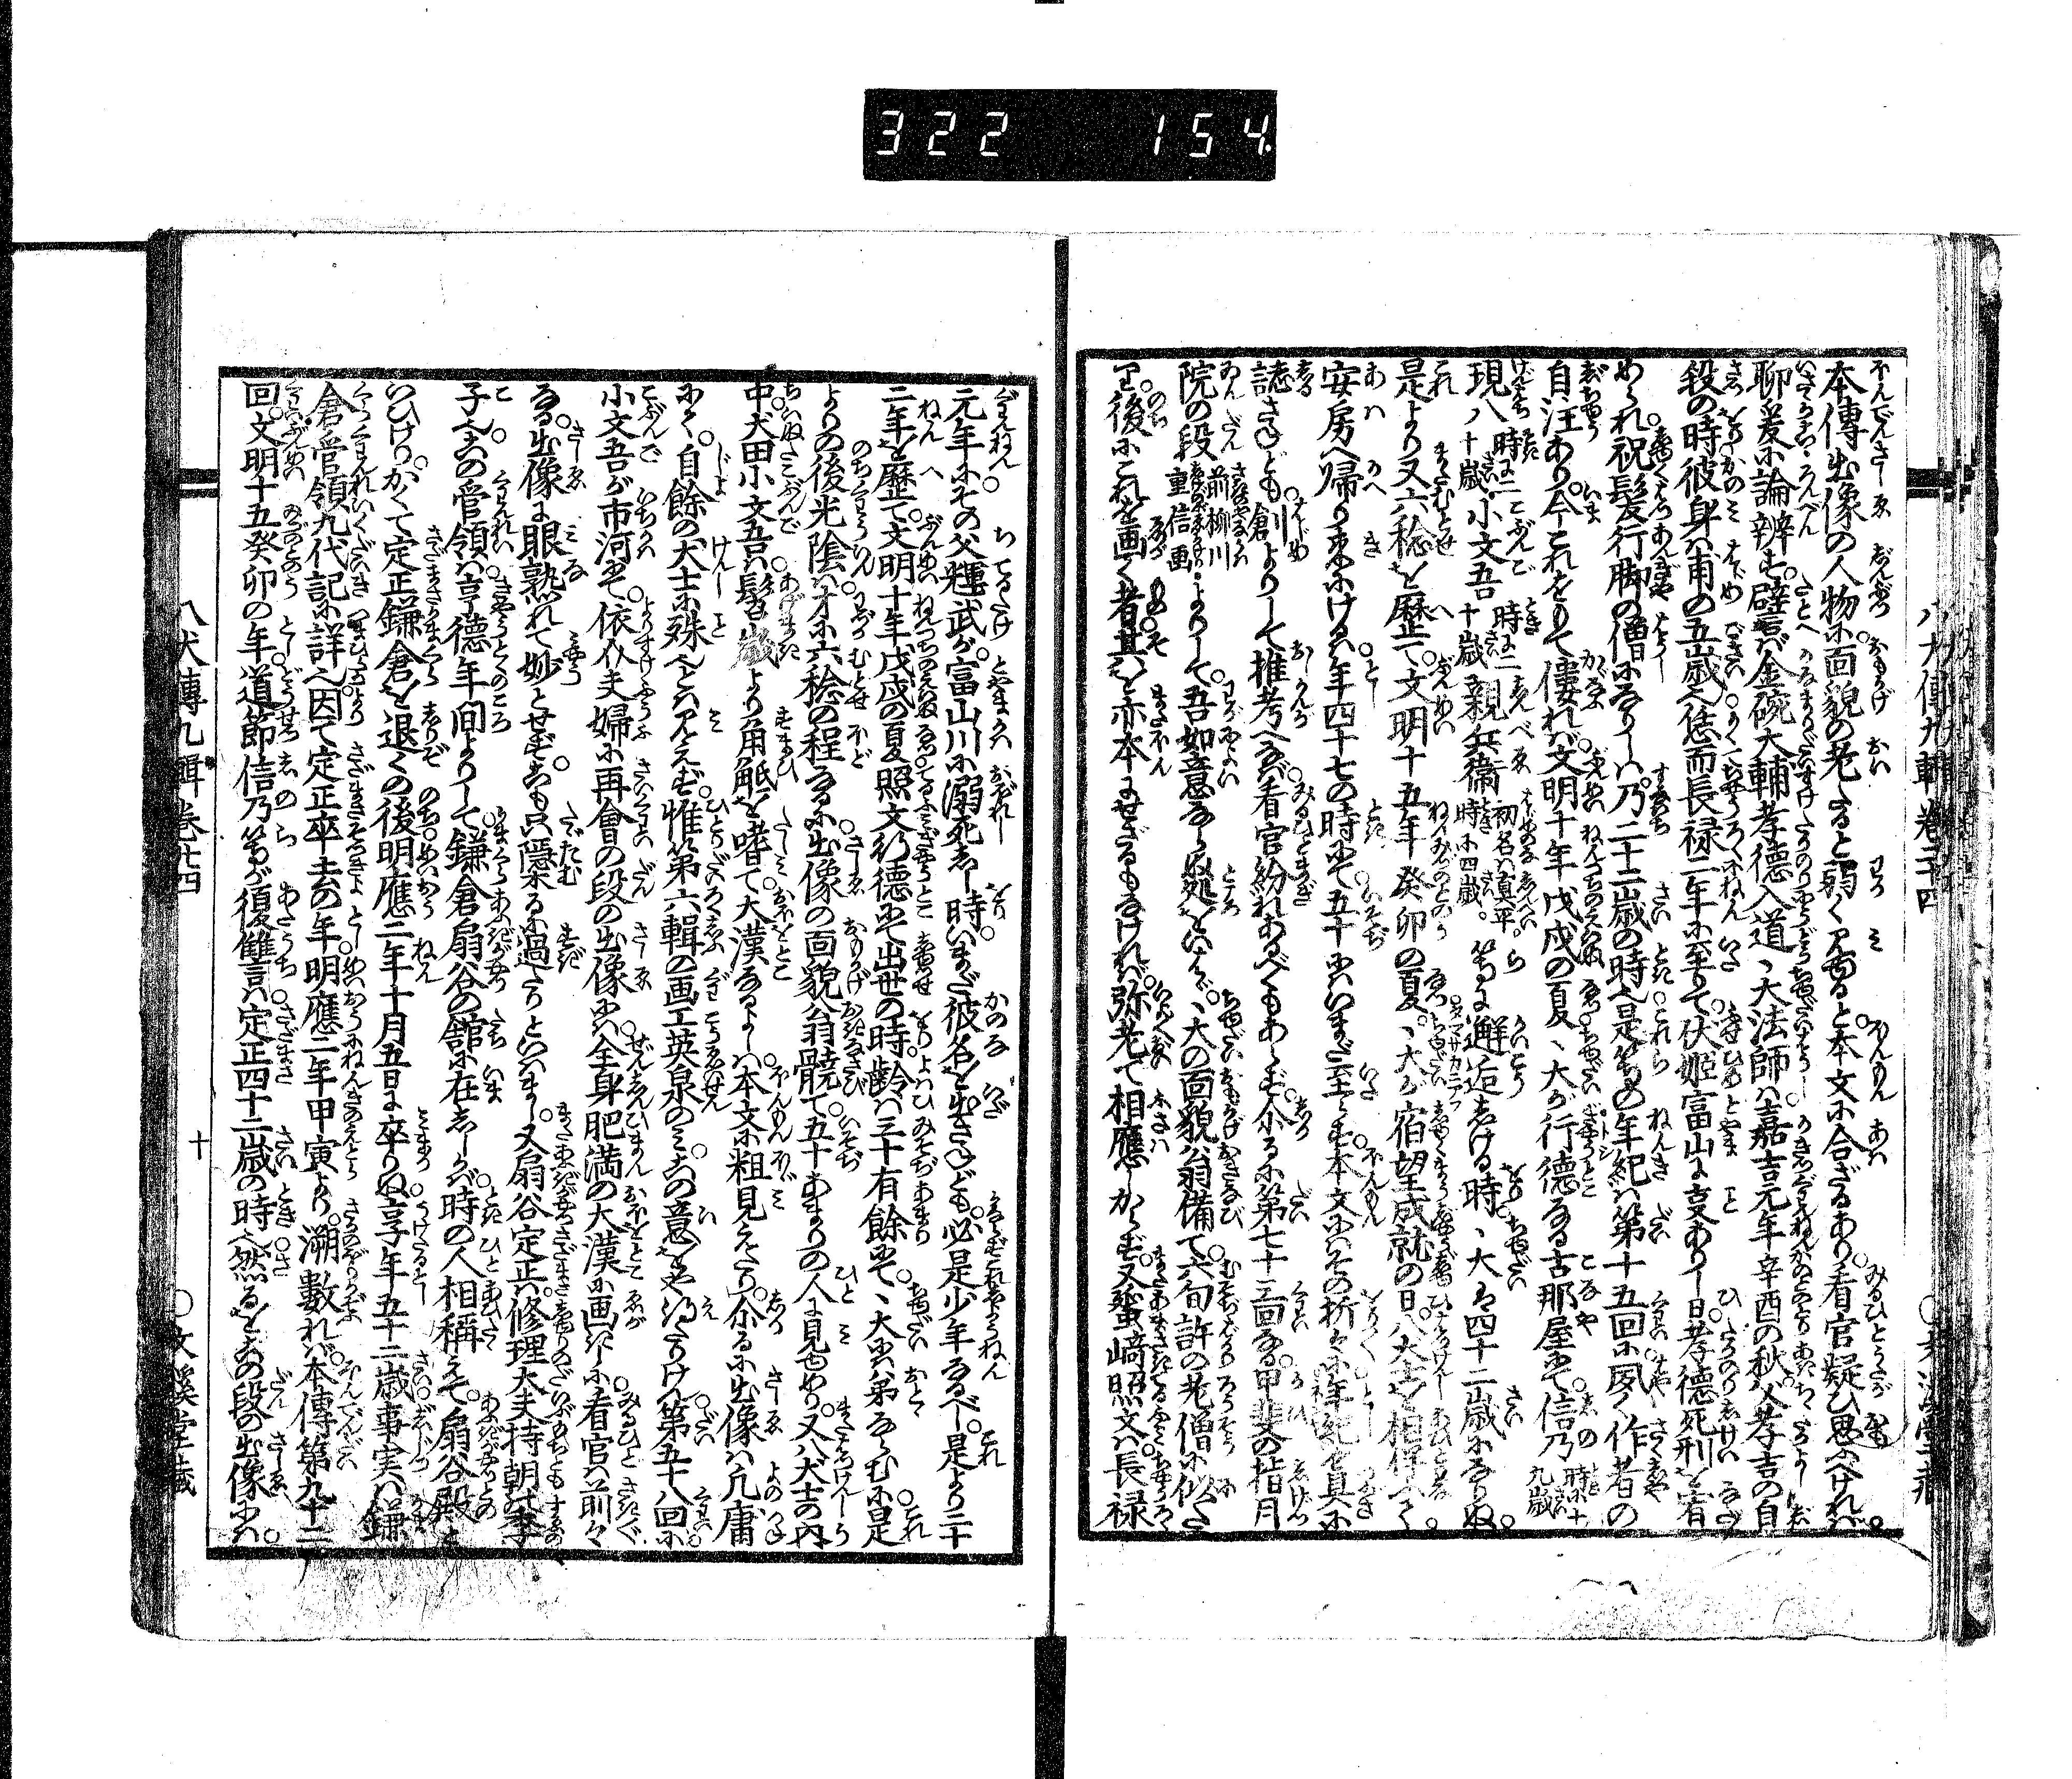 322 154
本傳出像の人物に面貌の老たると弱く見ゆると本文に合ざるあり看官疑ひ思ふべければ
聊爰に論辨す譬ば金碗大輔孝德入道丶大法師は嘉吉元年辛酉の秋父孝吉の自
殺の時彼身は甫の五歳也恁而長禄二年に至りて伏姬富山に事ありし日孝德死刑を宥
められ祝髮行脚の僧になりしは乃二十二歳の時也是等の年紀は第十五回に夙く作者の
自注あり今これをもて僂れば文明十年戊戌の夏丶大が行德なる古那屋にて信乃時に十九歳
現八時に二十歳小文吾時に二十歳親兵衞初名は真平時に四歳。等に邂逅しける時丶大は四十二歳になりぬ
是より又六稔を歷て文明十五年癸卯の夏丶大が宿望成就の日八犬士を相得て
安房へ歸り來にけるは年四十七の時にて五十にはいまだ至らず本文にはその折々に年紀を具に
誌さゞれども創よりして推考へなば看官紛れあるべくもあらず尒るに第七十三回なる甲斐の指月
院の段前柳川重信画によりして吾如意ならぬ処をいはゞ丶大の面貌翁備て六旬許の老僧に似たり
後にこれを画く者其を亦本にせざるもなければ弥老て相應しからず又蜑崎照文は長禄
八犬傳九輯卷廿四
元年にその父輝武が富山川に溺死しし時いまだ彼名を出さゞれども必是少年なるべし是より二十
二年を歷て文明十年戊戌の夏照文行德にて出世の時齡は三十有餘にて丶大には弟ならむに是
よりの後光陰は才に六稔の程なるに出像の面貌翁髐て五十あまりの人に見ゆめり又八犬士の内
中犬田小文吾は髫歳より角觝を嗜て大漢なるよしは本文に粗見えたり尒るに出像は凡庸
にて自餘の犬士に殊ことは見えず惟第六輯の画工英泉のみこの意をや得たりけん第五十八回に
小文吾が市河にて依介夫婦に再會の段の出像には全身肥満の大漢に画きしに看官は前々
なる出像に眼熟れて妙とせずこも只隱なるに過たりといはまし又扇谷定正は修理大夫持朝の季
子也この管領は享德年間よりして鎌倉扇谷の舘に在しかば時の人相稱えて扇谷殿と
いひけりかくて定正鎌倉を退くの後明應二年十月五日に卒りぬ享年五十二歳事実は鎌
倉管領九代記に詳也因て定正卒去の年明應二年甲寅より溯り數れば本傳第九十二
回文明十五癸卯の年道節信乃等が復讐言は定正四十二歳の時也然るをこの段の出像には
八犬傳九輯卷廿四
十
文溪堂藏